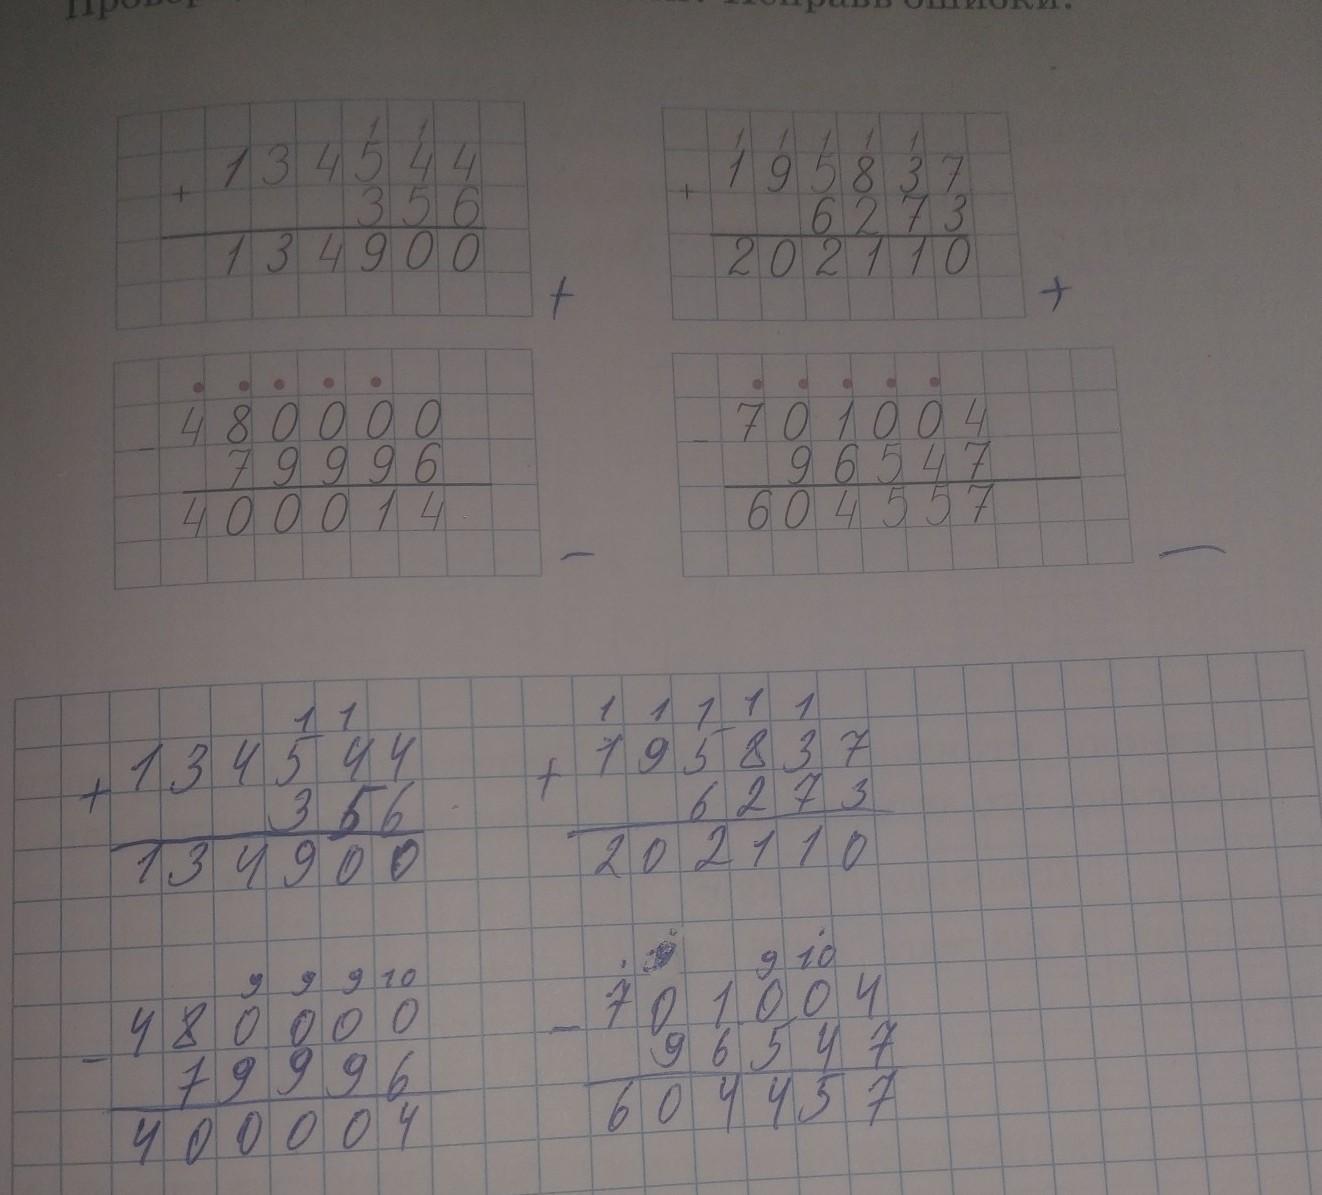 Исправь ошибки.
1 1
134544
+
356
134900
+
1 1 1 1 1
195837
+
6273
202110
+
480000
-
79996
400014
-
701004
-
96547
604557
-
1 1
134544
+
356
134900
1 1 1 1 1
195837
+
6273
202110
9 9 9 10
480000
-
79996
400004
9 10
701004
-
96547
604457